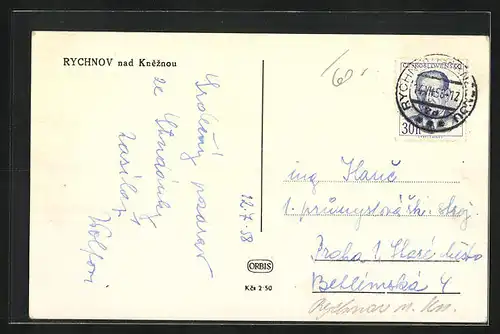 RYCHNOV nad Kněžnou
Srdečný pozdrav
ze
zasílají
Wolfovi
12.7.58
ORBIS
Kčs 2·50
60
ČESKOSLOVENSKO
30 h
ing Hauč
1. průmyslová šk. stroj.
Praha 1, Staré město
Betlémská 4
Rychnov n. Kn.